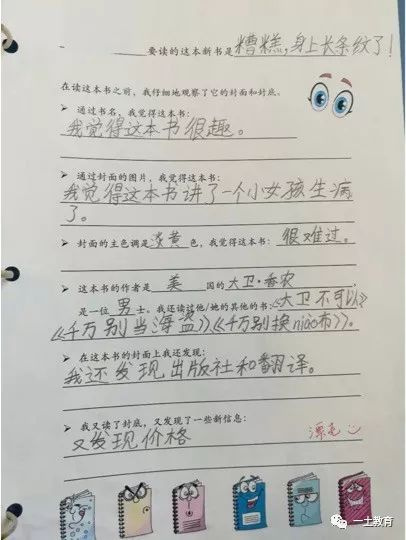 要读的这本新书是糟糕,身上长条纹了!
在读这本书之前,我仔细地观察了它的封面和封底。
➢ 通过书名,我觉得这本书:
我觉得这本书很趣。
➢ 通过封面的图片,我觉得这本书:
我觉得这本书讲了一个小女孩生病
了。
➢ 封面的主色调是淡黄色,我觉得这本书: 很难过。
➢ 这本书的作者是 美 国的大卫·香农,
是一位 男 士。我还读过他/她的其他的书:《大卫不可以》
《千万别当海盗》《千万别换niào布》。
➢ 在这本书的封面上我还发现:
我还发现出版社和翻译。
➢ 我又读了封底,又发现了一些新信息:
又发现价格
漂亮
一土教育